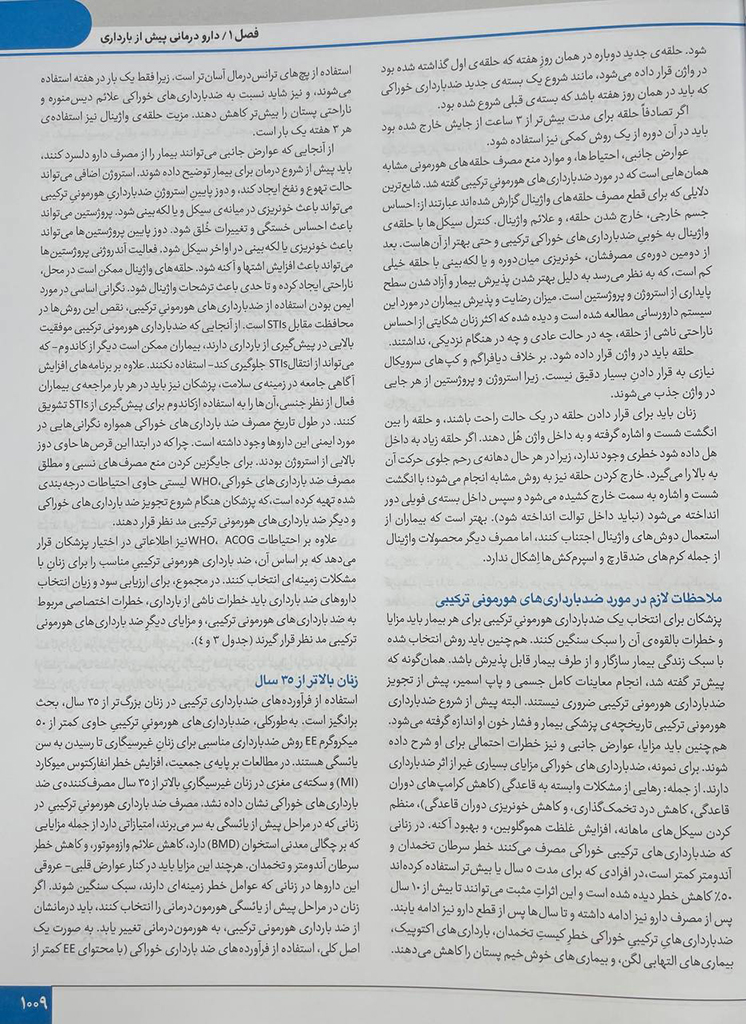 فصل ۱/ دارو درمانی پیش از بارداری
شود. حلقه‌ی جدید دوباره در همان روز هفته که حلقه‌ی اول گذاشته شده بود
در واژن قرار داده می‌شود، مانند شروع یک بسته‌ی جدید ضدبارداری خوراکی
که باید در همان روز هفته باشد که بسته‌ی قبلی شروع شده بود.
اگر تصادفاً حلقه برای مدت بیش‌تر از ۳ ساعت از جایش خارج شده بود
باید در آن دوره از یک روش کمکی نیز استفاده شود.
عوارض جانبی، احتیاط‌ها، و موارد منع مصرف حلقه‌های هورمونی مشابه
همان‌هایی است که در مورد ضدبارداری‌های هورمونیِ ترکیبی گفته شد. شایع‌ترین
دلایلی که برای قطع مصرف حلقه‌های واژینال گزارش شده‌اند عبارتند از: احساس
جسم خارجی، خارج شدن حلقه، و علائم واژینال. کنترل سیکل‌ها با حلقه‌ی
واژینال به خوبیِ ضدبارداری‌های خوراکی ترکیبی و حتی بهتر از آن‌هاست. بعد
از دومین دوره‌ی مصرفشان، خونریزی میان‌دوره و یا لکه‌بینی با حلقه خیلی
کم است، که به نظر می‌رسد به دلیل بهتر شدن پذیرش بیمار و آزاد شدن سطح
پایداری از استروژن و پروژستین است. میزان رضایت و پذیرش بیماران در مورد این
سیستم دارورسانی مطالعه شده است و دیده شده که اکثر زنان شکایتی از احساس
ناراحتی ناشی از حلقه، چه در حالت عادی و چه در هنگام نزدیکی، نداشتند.
حلقه باید در واژن قرار داده شود. بر خلاف دیافراگم و کپ‌های سرویکال
نیازی به قرار دادنِ بسیار دقیق نیست. زیرا استروژن و پروژستین از هر جایی
در واژن جذب می‌شوند.
زنان باید برای قرار دادن حلقه در یک حالت راحت باشند، و حلقه را بین
انگشت شست و اشاره گرفته و به داخل واژن هُل دهند. اگر حلقه زیاد به داخل
هل داده شود خطری وجود ندارد، زیرا در هر حال دهانه‌ی رحم جلوی حرکت آن
به بالا را می‌گیرد. خارج کردن حلقه نیز به روش مشابه انجام می‌شود؛ با انگشت
شست و اشاره به سمت خارج کشیده می‌شود و سپس داخل بسته‌ی فویلی دور
انداخته می‌شود (نباید داخل توالت انداخته شود). بهتر است که بیماران از
استعمال دوش‌های واژینال اجتناب کنند، اما مصرف دیگر محصولات واژینال
از جمله کرم‌های ضدقارچ و اسپرم‌کش‌ها اِشکال ندارد.
ملاحظات لازم در مورد ضدبارداری‌های هورمونی ترکیبی
پزشکان برای انتخاب یک ضدبارداری هورمونی ترکیبی برای هر بیمار باید مزایا
و خطرات بالقوه‌ی آن را سبک سنگین کنند. هم‌چنین باید روش انتخاب شده
با سبک زندگی بیمار سازگار و از طرف بیمار قابل پذیرش باشد. همان‌گونه که
پیش‌تر گفته شد، انجام معاینات کامل جسمی و پاپ اسمیر، پیش از تجویز
ضدبارداری هورمونی ترکیبی ضروری نیستند. البته پیش از شروع ضدبارداری
هورمونی ترکیبی تاریخچه‌ی پزشکی بیمار و فشار خون او اندازه گرفته می‌شود.
هم‌چنین باید مزایا، عوارض جانبی و نیز خطرات احتمالی برای او شرح داده
شوند. برای نمونه، ضدبارداری‌های خوراکی مزایای بسیاری غیر از اثر ضدبارداری
دارند. از جمله: رهایی از مشکلات وابسته به قاعدگی (کاهش کرامپ‌های دوران
قاعدگی، کاهش درد تخمک‌گذاری، و کاهش خونریزی دوران قاعدگی)، منظم
کردن سیکل‌های ماهانه، افزایش غلظت هموگلوبین، و بهبود آکنه. در زنانی
که ضدبارداری‌های ترکیبی خوراکی مصرف می‌کنند خطر سرطان تخمدان و
آندومتر کمتر است، در افرادی که برای مدت ۵ سال یا بیش‌تر استفاده کرده‌اند
۵۰٪ کاهش خطر دیده شده است و این اثرات مثبت می‌توانند تا بیش از ۱۰ سال
پس از مصرف دارو نیز ادامه داشته و تا سال‌ها پس از قطع دارو نیز ادامه یابند.
ضدبارداری‌های ترکیبیِ خوراکی خطر کیست تخمدان، بارداری‌های اکتوپیک،
بیماری‌های التهابی لگن، و بیماری‌های خوش‌خیم پستان را کاهش می‌دهند.
استفاده از پچ‌های ترانس‌درمال آسان‌تر است. زیرا فقط یک بار در هفته استفاده
می‌شوند، و نیز شاید نسبت به ضدبارداری‌های خوراکی علائم دیس‌منوره و
ناراحتی پستان را بیش‌تر کاهش دهند. مزیت حلقه‌ی واژینال نیز استفاده‌ی
هر ۳ هفته یک بار است.
از آنجایی که عوارض جانبی می‌توانند بیمار را از مصرف دارو دلسرد کنند،
باید پیش از شروع درمان برای بیمار توضیح داده شوند. استروژن اضافی می‌تواند
حالت تهوع و نفخ ایجاد کند، و دوز پایینِ استروژنِ ضدبارداریِ هورمونیِ ترکیبی
می‌تواند باعث خونریزی در میانه‌ی سیکل و یا لکه‌بینی شود. پروژستین می‌تواند
باعث احساس خستگی و تغییرات خُلق شود. دوز پایین پروژستین‌ها می‌تواند
باعث خونریزی یا لکه‌بینی در اواخر سیکل شود. فعالیت آندروژنی پروژستین‌ها
می‌تواند باعث افزایش اشتها و آکنه شود. حلقه‌های واژینال ممکن است در محل،
ناراحتی ایجاد کرده و تا حدی باعث ترشحات واژینال شود. نگرانی اساسی در مورد
ایمن بودن استفاده از ضدبارداری‌های هورمونیِ ترکیبی، نقص این روش‌ها در
محافظت مقابل STIs است. از آنجایی که ضدبارداری هورمونی ترکیبی موفقیت
بالایی در پیش‌گیری از بارداری دارند، بیماران ممکن است دیگر از کاندوم- که
می‌تواند از انتقال STIs جلوگیری کند- استفاده نکنند. علاوه بر برنامه‌های افزایش
آگاهی جامعه در زمینه‌ی سلامت، پزشکان نیز باید در هر بار مراجعه‌ی بیماران
فعال از نظر جنسی، آن‌ها را به استفاده از کاندوم برای پیش‌گیری از STIs تشویق
کنند. در طول تاریخ مصرف ضد بارداری های خوراکی همواره نگرانی‌هایی در
مورد ایمنی این داروها وجود داشته است. چرا که در ابتدا این قرص‌ها حاوی دوز
بالایی از استروژن بودند. برای جایگزین کردن منع مصرف‌های نسبی و مطلق
مصرف ضد بارداری های خوراکی، WHO لیستی حاوی احتیاطات درجه‌بندی
شده تهیه کرده است، که پزشکان هنگام شروع تجویز ضدبارداری های خوراکی
و دیگر ضد بارداری های هورمونی ترکیبی مد نظر قرار دهند.
علاوه بر احتیاطات WHO، ACOG نیز اطلاعاتی در اختیار پزشکان قرار
می‌دهد که بر اساس آن، ضد بارداری هورمونی ترکیبیِ مناسب را برای زنانِ با
مشکلات زمینه‌ای انتخاب کنند. در مجموع، برای ارزیابی سود و زیان انتخاب
داروهای ضد بارداری باید خطرات ناشی از بارداری، خطرات اختصاصی مربوط
به ضد بارداری‌های هورمونی ترکیبی، و مزایای دیگرِ ضد بارداری‌های هورمونی
ترکیبی مد نظر قرار گیرند (جدول ۳ و ۴).
زنان بالاتر از ۳۵ سال
استفاده از فرآورده‌های ضدبارداری ترکیبی در زنان بزرگ‌تر از ۳۵ سال، بحث
برانگیز است. به‌طورکلی، ضدبارداری‌های هورمونیِ ترکیبیِ حاوی کمتر از ۵۰
میکروگرم EE روش ضدبارداری مناسبی برای زنان غیرسیگاری تا رسیدن به سن
یائسگی هستند. در مطالعات بر پایه‌ی جمعیت، افزایش خطر انفارکتوس میوکارد
(MI) و سکته‌ی مغزی در زنان غیرسیگاریِ بالاتر از ۳۵ سال مصرف‌کننده‌ی ضد
بارداری‌های خوراکی نشان داده نشد. مصرف ضد بارداری هورمونی ترکیبی در
زنانی که در مراحل پیش از یائسگی به سر می‌برند، امتیازاتی دارد از جمله مزایایی
که بر چگالی معدنی استخوان (BMD) دارد، کاهش علائم وازوموتور، و کاهش خطر
سرطان آندومتر و تخمدان. هرچند این مزایا باید در کنار عوارض قلبی- عروقی
این داروها در زنانی که عوامل خطر زمینه‌ای دارند، سبک سنگین شوند. اگر
زنان در مراحل پیش از یائسگی هورمون‌درمانی را انتخاب کنند، باید درمانشان
از ضد بارداری هورمونی ترکیبی، به هورمون‌درمانی تغییر یابد. به صورت یک
اصل کلی، استفاده از فرآورده‌های ضد بارداری خوراکی (با محتوای EE کمتر از
۱۰۰۹